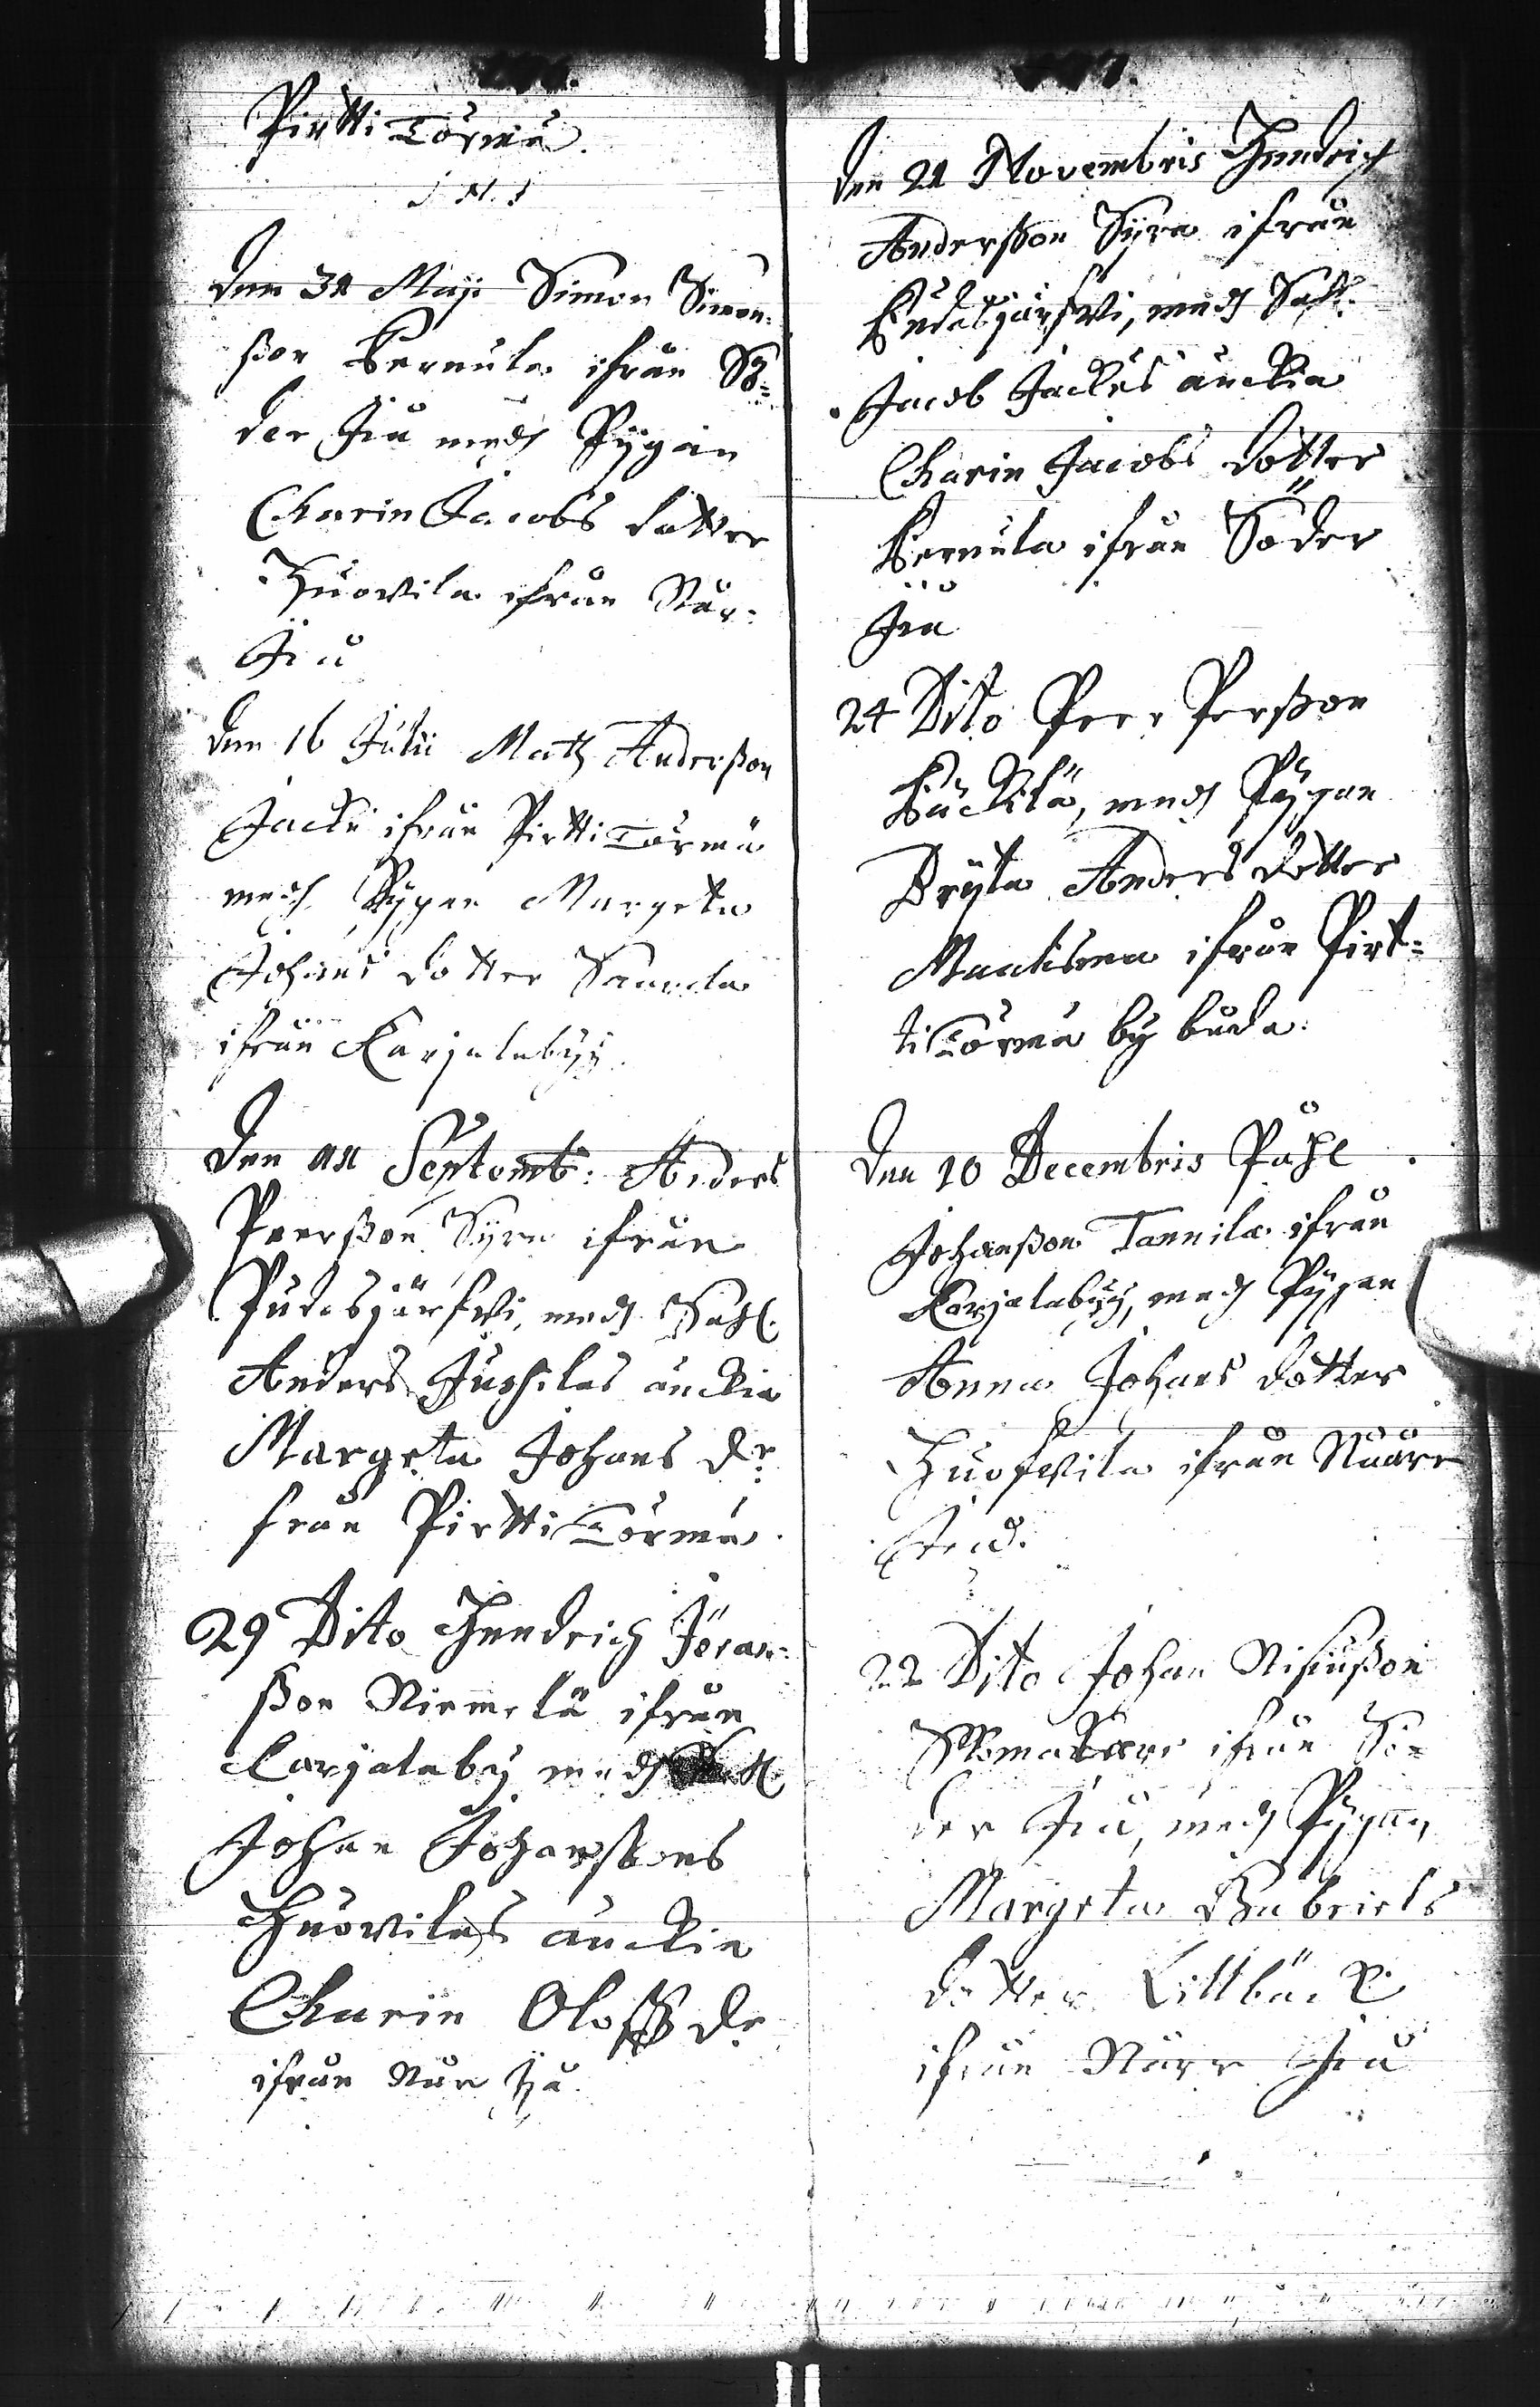 Pirtti Törmä.
J. N. J
Den 31 Maji Simon Simon-
ßon Pernula ifrån Sö-
der Jiå medh Pijgan
Charin Jacobs dotter
Huovila ifrån Når-
Jiå
Den 16 Julii Matz Anderßon
Jacku ifrån Pirtti Törmä
medh Pijgan Margeta
Johans dotter
ifrån Karjalabyij
Den 11 Septemb: Anders
Peerßon Syre ifrån
Pudasjärfvi, medh Sahl.
Anders Juholas änckia
Margeta Johans dr
från Pirtti Törmä.
29 Dito Hendrich Jöran-
ßon Niemelä ifrån
Carjalaby medh
Johan Johanßons
Huovilas änckia
Charin Oloffz dr
ifrån Når Jiå.
Den 21 Novembris Hendrich
Anderßon Syre ifrån
Pudasjärfvi, medh Sahl.
Jacob Jackus änckia
Charin Jacobs dotter
Pernula ifrån Söder
Jiå
24 Dito Peer Perßon
medh Pijgan
Bryta Anders dotter
ifrån Pirt-
ti Törmä by båda.
Den 10 Decembris Påhl
Johanßon Tannila ifrån
Karjalabyij, medh Pijgan
Anna Johans dotter
Huofvila ifrån Nååre
Jiå.
22 Dito Johan
Skomakare ifrån Sö-
der Jiå, medh Pijgan
Margeta Gabriels
dotter Littbäck
ifrån Nårr Jiå